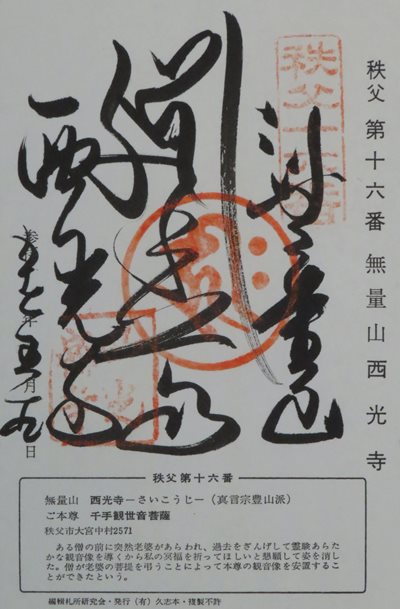 秩父 第十六番 無量山 西光寺
無量山
西光寺
秩父第十六番
無量山 西光寺－さいこうじ－（真言宗豊山派）
ご本尊 千手観世音菩薩
秩父市大宮中村2571
ある僧の前に突然老婆があらわれ、過去をざんげして霊験あらた
かな観音像を導くから私の冥福を祈ってほしいと懇願して姿を消し
た。僧が老婆の菩提を弔うことによって本尊の観音像を安置するこ
とができたという。
編輯札所研究会・発行（有）久志本・複製不許